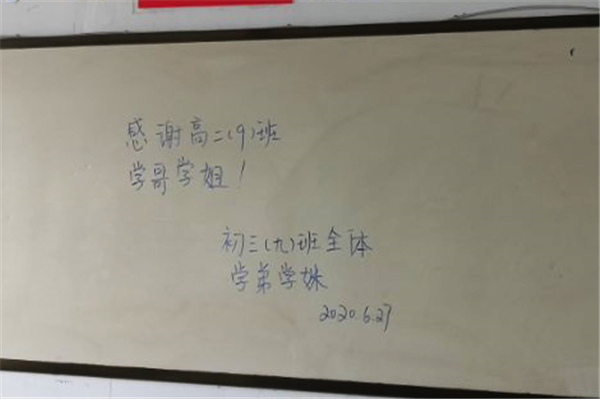 感谢高二(9)班
学哥学姐!
初三(九)班全体
学弟学妹
2020.6.27